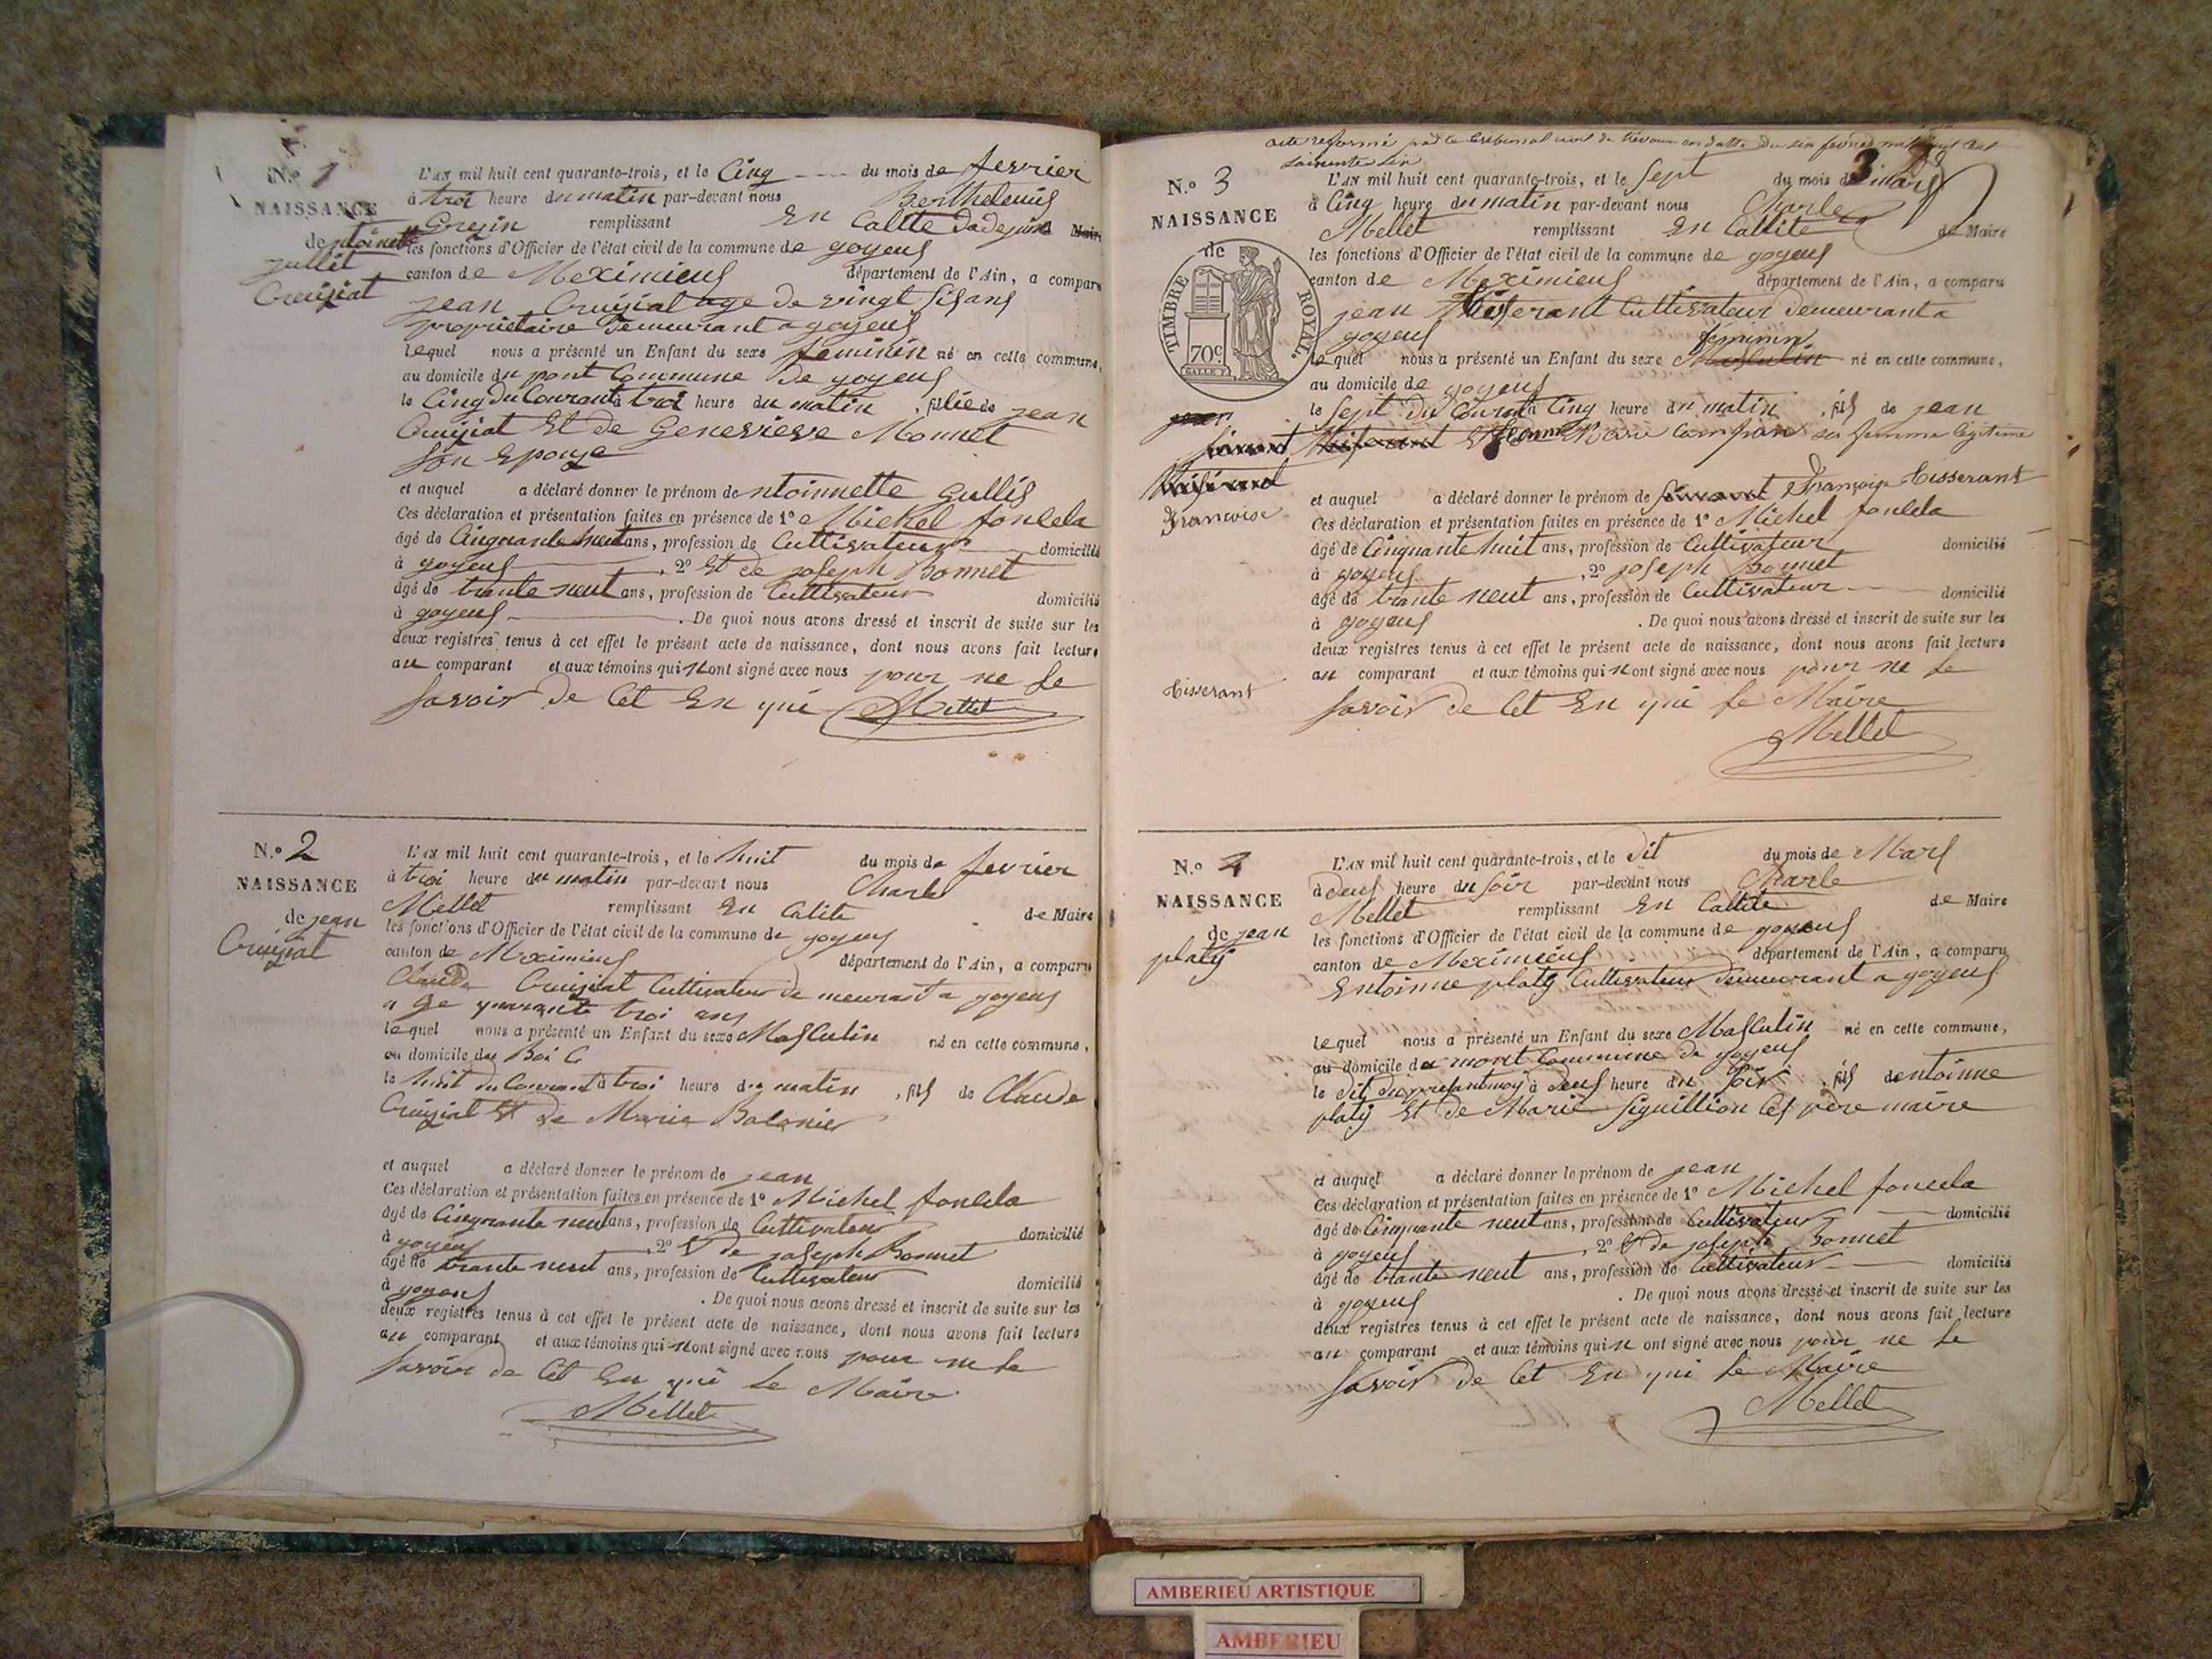 N.º 1
NAISSANCE
de ntoinette
jullis
Cruiziat
L'AN mil huit cent quarante-trois, et le Cinq du mois de fevrier
à troi heure du matin par-devant nous Berthelemis
Grezin remplissant En Calite Dadejoint Maire
les fonctions d'Officier de l'état civil de la commune de goyeus
canton de Meximieus département de l'Ain, a comparu
jean Cruiziat age de vingt sis ans
propriétaire Demeurant a goyeus
lequel nous a présenté un Enfant du sexe feminin né en cette commune,
au domicile du pont Commune De goyeus
le Cinq du Courant à troi heure du matin, fille de jean
Cruiziat Et de Genevieve Monnet
son Epouze
et auquel a déclaré donner le prénom de ntoinnette Gullis
Ces déclaration et présentation faites en présence de 1º Michel fonlela
âgé de Cinquante neut ans, profession de Cultivateur domicilié
à goyeus, 2º Et de joseph Bonnet
âgé de trante neut ans, profession de Cultivateur domicilié
à goyeus. De quoi nous avons dressé et inscrit de suite sur les
deux registres tenus à cet effet le présent acte de naissance, dont nous avons fait lecture
au comparant et aux témoins qui nont signé avec nous pour ne le
savoir de Cet En qui Mellet
N.º 2
NAISSANCE
de jean
Cruiziat
L'AN mil huit cent quarante-trois, et le huit du mois de fevrier
à troi heure du matin par-devant nous Charle
Mellet remplissant En Calite de Maire
les fonctions d'Officier de l'état civil de la commune de goyeus
canton de Meximieus département de l'Ain, a comparu
Claude Cruiziat Cultivateur de meurant a goyeus
a ge quarante troi ans
lequel nous a présenté un Enfant du sexe Masculin né en cette commune,
au domicile du
le huit du Courant à troi heure du matin, fils de Claude
Cruiziat Et de Marie Balonier
et auquel a déclaré donner le prénom de jean
Ces déclaration et présentation faites en présence de 1º Michel fonlela
âgé de Cinquante neut ans, profession de Cultivateur domicilié
à goyeus, 2º Et de joseph Bonnet
âgé de trante neut ans, profession de Cultivateur domicilié
à goyeus. De quoi nous avons dressé et inscrit de suite sur les
deux registres tenus à cet effet le présent acte de naissance, dont nous avons fait lecture
au comparant et aux témoins qui nont signé avec nous pour ne le
savoir de Cet En qui Le Maire
Mellet
acte reformé par le tribunal civil de trévoux en datte du six février mil huit cent
soixante six
3
N.º 3
NAISSANCE
de
TIMBRE ROYAL
70c
jean
Francoise
Tisserant
L'AN mil huit cent quarante-trois, et le Sept du mois de mars
à Cinq heure du matin par-devant nous Charle
Mellet remplissant En Callite de Maire
les fonctions d'Officier de l'état civil de la commune de goyeus
canton de Meximieus département de l'Ain, a comparu
jean Tisserant Cultivateur Demeurant a
goyeus féminin
lequel nous a présenté un Enfant du sexe Masculin né en cette commune,
au domicile de goyeus
le Sept du Courant à Cinq heure du matin, fils de jean
Tisserant Et Jeanne Marie Campion sa femme légitime
et auquel a déclaré donner le prénom de Françoise Tisserant
Ces déclaration et présentation faites en présence de 1º Michel fonlela
âgé de Cinquante huit ans, profession de Cultivateur domicilié
à goyeus, 2º joseph Bonnet
âgé de trante neut ans, profession de Cultivateur domicilié
à goyeus. De quoi nous avons dressé et inscrit de suite sur les
deux registres tenus à cet effet le présent acte de naissance, dont nous avons fait lecture
au comparant et aux témoins qui nont signé avec nous pour ne le
savoir de Cet En qui Le Maire
Mellet
N.º 4
NAISSANCE
de jean
platy
L'AN mil huit cent quarante-trois, et le Dit du mois de Mars
à deus heure du soir par-devant nous Charle
Mellet remplissant En Callite de Maire
les fonctions d'Officier de l'état civil de la commune de goyeus
canton de Meximieus département de l'Ain, a comparu
Entoinne platy Cultivateur Demeurant a goyeus
lequel nous a présenté un Enfant du sexe Masculin né en cette commune,
au domicile du mont Commune de goyeus
le Dit du presant moy à deus heure du soir, fils dentoinne
platy Et de Marie Siguillion Ces père maire
et auquel a déclaré donner le prénom de jean
Ces déclaration et présentation faites en présence de 1º Michel fonlela
âgé de Cinquante neut ans, profession de Cultivateur domicilié
à goyeus, 2º Et de joseph Bonnet
âgé de trante neut ans, profession de Cultivateur domicilié
à goyeus. De quoi nous avons dressé et inscrit de suite sur les
deux registres tenus à cet effet le présent acte de naissance, dont nous avons fait lecture
au comparant et aux témoins qui n ont signé avec nous pour ne le
savoir de Cet En qui Le Maire
Mellet
AMBERIEU ARTISTIQUE
AMBERIEU